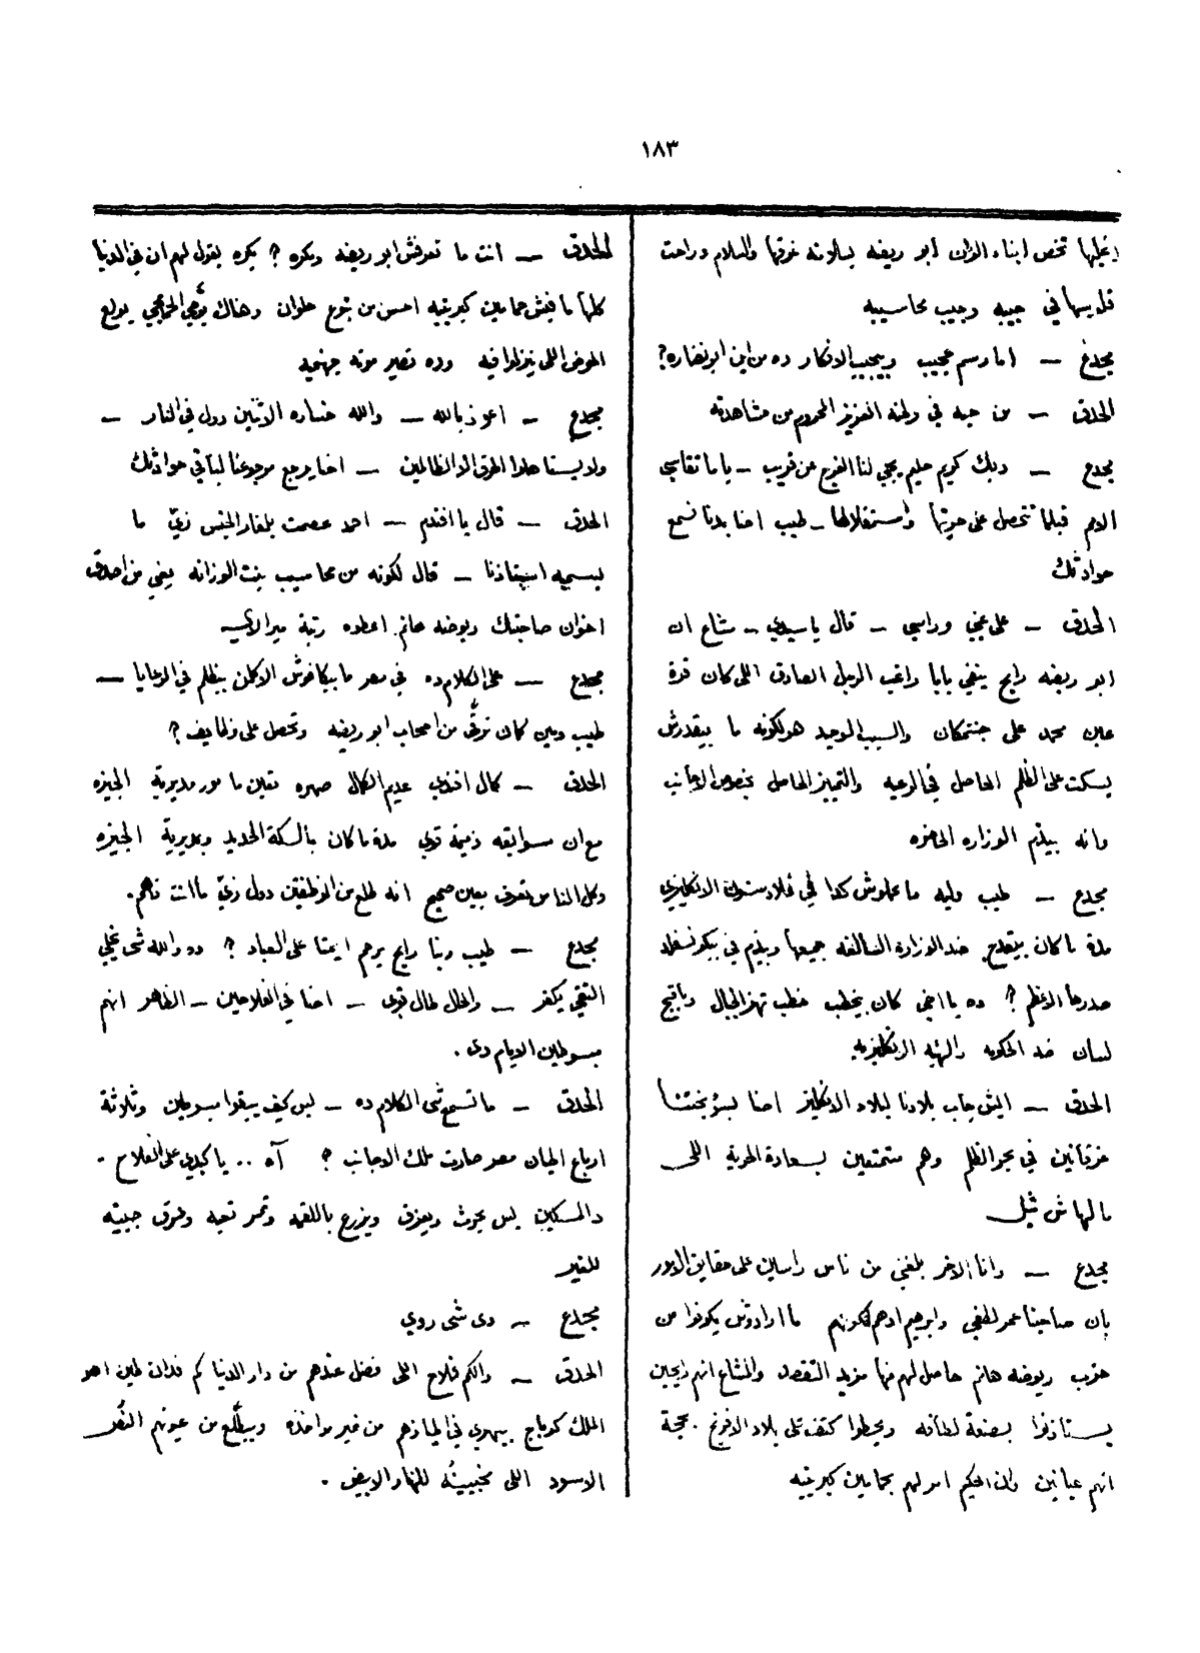 ١٨٣
تخص ابناء الوزان ابو ريضه بسلامة غرقها والسلام وراحت
في جيبه وجيب محاسيبه
مجدع — اما رسم عجيب ويعجب الافكار ده من اين ابو نضاره؟
الحدق — من حبه في وطنه العزيز المحروم من مشاهدته
مجدع — ربك كريم حليم يجي لنا الفرج عن قريب — ياما تقاسي
الامم قبلما تتحصل على حريتها واستقلالها — طيب احنا بدنا نسمع
حوادثك
الحدق — على عيني وراسي — قال يا سيدي — شاع ان
ابو ريضه رايح ينفي بابا راغب الرجل الصادق اللى كان قرة
عين محمد على جنتمكان والسبب الوحيد هو لكونه ما بيقدرش
يسكت على الظلم الحاصل في الرعيه والتمييز الحاصل بخصوص الاجانب
وانه بيذم الوزاره الحاضره
مجدع — طيب وليه ما عملوش كدا في غلادستون الانكليزي
مدة ما كان بيقدح ضد الوزارة السالفه جميعها ويذم في بيكونسفلد
صدرها الاعظم؟ ده يا اخي كان يخطب خطب تهز الجبال وباقبح
لسان ضد الحكومه والهيئه الانكليزيه
الحدق — ايش جاب بلادنا لبلاد الانكليز احنا لسؤ بختنا
غرقانين في بحر الظلم وهم متمتعين بسعادة الحرية اللى
مالهاش مثيل
مجدع — وانا الاخر بلغني من ناس راسيين على حقايق الامور
بان صاحبنا عمر لطفي وابراهيم ادهم لكونهم ما ارادوش يكونوا من
حزب ريوضه هانم حاصل لهم منها مزيد التقصد والمشاع انهم رايحين
يستاذنوا بصنعة لطافه ويحطوا كتف على بلاد الافرنج . بحجة
انهم عيانين وان الحكيم امر لهم بحمامين كبريتيه
الحدق — انت ما تعرفش ابو ريضه ومكره؟ بكره يقول لهم ان في الدنيا
كلها ما فيش حمامين كبريتيه احسن من بتوع حلوان وهناك يوصي الحمامجي يولع
الحوض اللى ينزلوا فيه وده تصير موته جهنميه
مجدع — اعوذ بالله — والله خساره الاتنين دول في النار —
ولا يستاهلوا الحرق الا الظالمين — احنا يرجع مرجوعنا لباقي حوادثك
الحدق — قال يا افندم — احمد عصمت بلغار الجنس زي ما
بيسميه استاذنا — قال لكونه من محاسيب بنت الوزانه يعني من اصدق
اخوان صاحبتك ريوضه هانم اعطوه رتبة ميرالاي
مجدع — على الكلام ده في مصر ما بيكافئوش الا كل من بيظلم في الرعايا —
طيب ومين كمان ترقى من اصحاب ابو ريضه وتحصل على وظايف؟
الحدق — كمال افندي عديم الكمال صهره تعين مامور مديرية الجيزه
مع ان سوابقه ذميمة قوي مدة ما كان بالسكة الحديد وبمديرية الجيزه
وكل الناس تعرف بعين صحيح انه طلع من الموظفين دول زي ما انت فاهم.
مجدع — طيب ربنا رايح يرحم ايمتا على العباد؟ ده والله شي يخلي
التقي يكفر — والحال طال قوي — احنا في الفلاحين — الظاهر انهم
مبسوطين الايام دي .
الحدق — ما تسمعشي الكلام ده — بس كيف يبقوا مبسوطين وثلاثة
ارباع اطيان مصر صارت ملك الاجانب؟ آه .. يا كبدي على الفلاح .
دا المسكين بس يحرث ويعزق ويزرع باللقمه وثمر تعبه وعرق جبينه
للغير
مجدع — دي شي ردي
الحدق — والكم فلاح اللى فضل عندهم من دار الدنيا كم فدان طين اهو
الملك كرباج بيهري في اليازهم من غير مؤاخذه وبيطلع من عيونهم النضر
الاسود اللى مخبيينه للنهار الابيض .